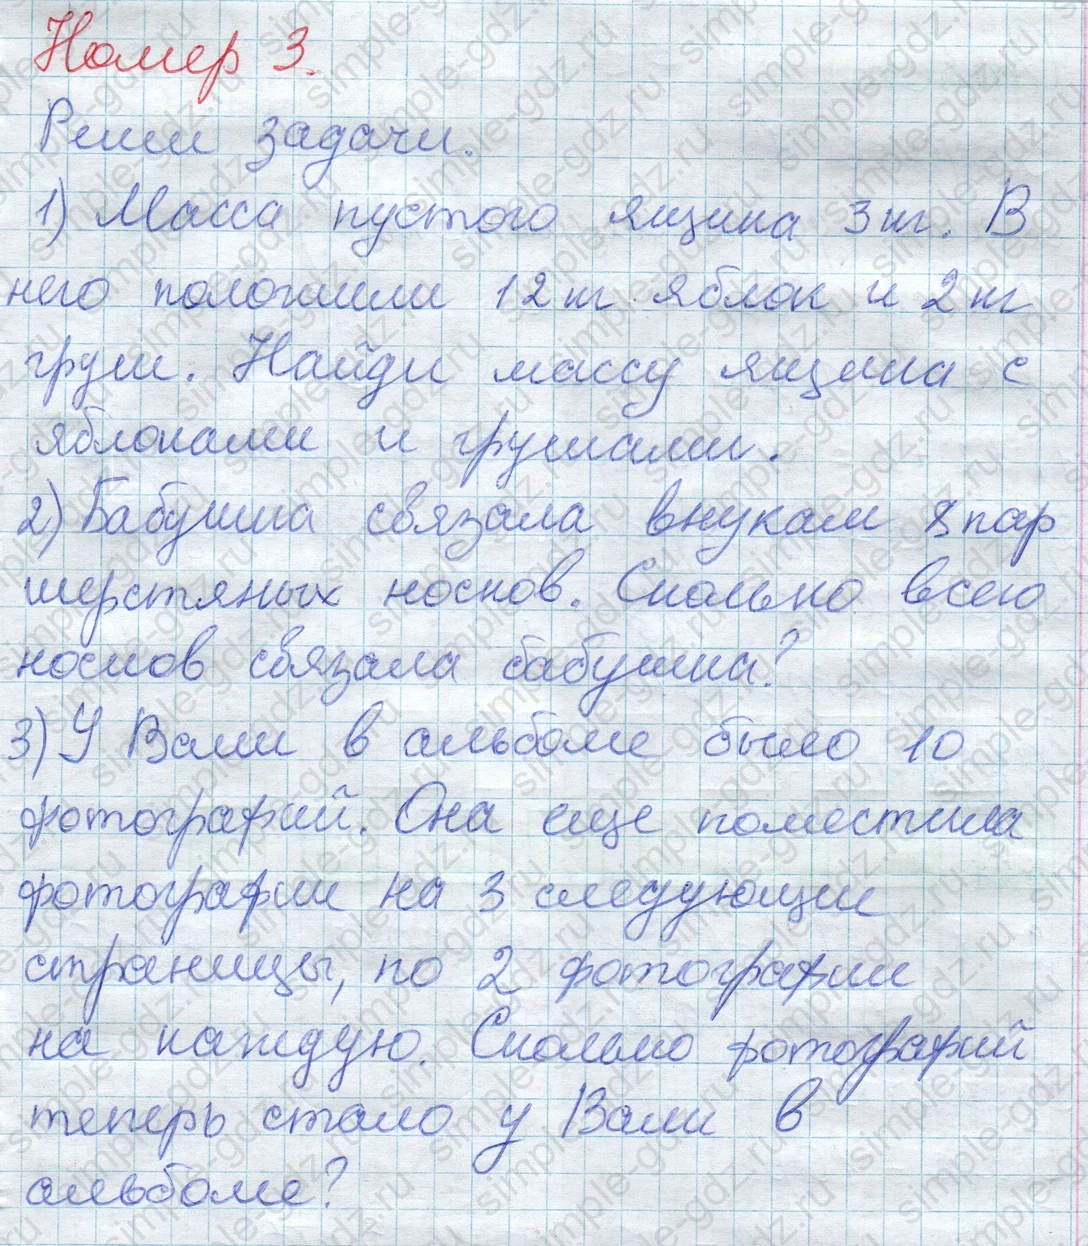 Номер 3.
Реши задачи.
1) Масса пустого ящика 3 кг. В
него положили 12 кг яблок и 2 кг
груш. Найди массу ящика с
яблоками и грушами.
2) Бабушка связала внукам 8 пар
шерстяных носков. Сколько всего
носков связала бабушка?
3) У Вали в альбоме было 10
фотографий. Она еще поместила
фотографии на 3 следующие
страницы, по 2 фотографии
на каждую. Сколько фотографий
теперь стало у Вали в
альбоме?
simple-gdz.ru